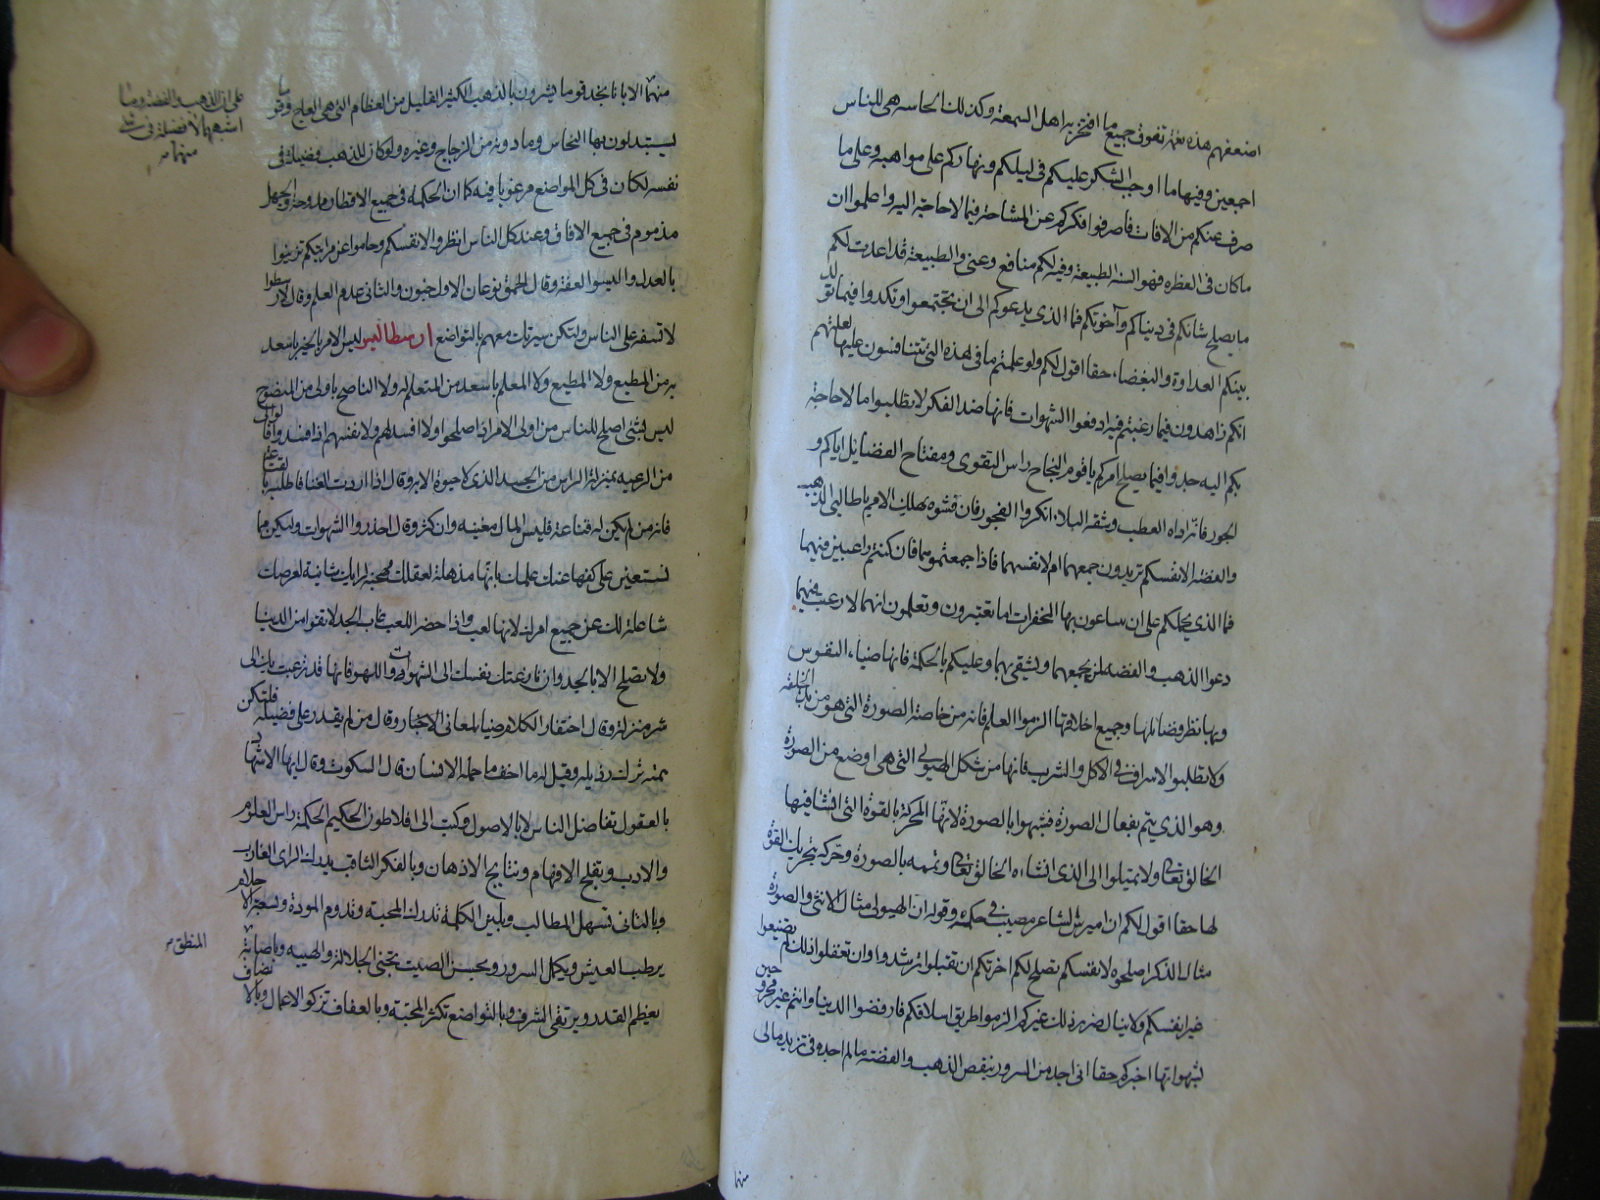 اضعفهم هذه نعمة تفوق جميع ما افتخر به اهل السمعة وكذلك الحاسه هي للناس
اجمعين وفيها ما اوجب الشكر عليكم في ليلكم ونهاركم على مواهبه وعلى ما
صرف عنكم من الافات فاصرفوا فكركم عن المشاحة فيما لا حاجة اليه واعلموا ان
ماكان في الفطره فهو السنة الطبيعة وفيه لكم منافع وغنى والطبيعة قد اعدت لكم
ما يصلح شانكم في دينكم وآخرتكم فما الذي يدعوكم الى ان تجتمعوا وتكدوا فيما تولد
بينكم العداوة والبغضاء حقا اقول لكم ولو علمتم ما في هذه التي تتنافسون عليها لعلمتم
انكم زاهدون فيما رغبتم فيه ادفعوا الشهوات فانها ضد الفكر لا تطلبوا ما لا حاجة
بكم اليه جدوا فيما يصلح امركم يا قوم النجاح راس التقوى ومفتاح الفضايل اياكم و
الجور فانه اداه العطب وثقة البلاء انكروا الفجور فان فشوه يهلك الامم يا طالبي الذهب
والفضة الانفسكم تريدون جمعهما ام لانفسهما فاذا جمعتموهما فان كنتم راغبين فيهما
فما الذي يحملكم على ان ساعون بها المحقرات اما تعتبرون وتعلمون انهما لا رغب فيهما
دعوا الذهب والفضه لمن يجمعهما ويشقى بهما وعليكم بالحكمة فانها ضياء النفوس
وبها تظهر فضائلها وجميع اخلاقها الزموا العلم فانه من خاصة الصورة التي هو من باب الخلقة
ولا تطلبوا الاسراف في الاكل والشرب فانها من شكل الهيولى التي هي اوضع من الصورة
وهو الذي يتم بفعال الصورة فتشبهوا بالصورة لانها المحركة بالقوة التي افشا فيها
الخالق تعالى ولا تميلوا الى الذي انشاءه الخالق تعالى وتممه بالصورة وحركه بتحريك القوة
لها حقا اقول لكم ان اميرس الشاعر مصيب في حكمه وقوله ان الهيولى مثال الانثى والصورة
مثال الذكر اصلحوا لانفسكم تصلح لكم اخرتكم ان تقبلوا ترشدوا وان تغفلوا ذلك لم تضيعوا
غير انفسكم ولا ينال ضرر ذلك غيركم الزموا طريق اسلافكم فارفضوا الدنيا وانتم غير مجروحين
لشهواتها اخبركم حقا اني اجد من السرور بنقص الذهب والفضة ما لم اجده في تزيد مالي
منها
منهما الا بانا نجد قوما يشرون بالذهب الكثير القليل من العظام التي هي العاج وقوما
يستبدلون بها النحاس وما دونه من الزجاج وغيره ولو كان للذهب فضيلة في
نفسه لكان في كل المواضع مرغوبا فيه كما ان الحكمة في جميع الاقطار ممدوحة والجهل
مذموم في جميع الافاق وعند كل الناس انظروا لانفسكم وحاموا عن مراتبكم تزينوا
بالعدل والبسوا العفة وقال الحمق نوعان الاول جنون والثاني عدم العلم وقال لارسطو
لا تسفه على الناس ولتكن سيرتك معهم بالتواضع ارسطاليس ليس الامر بالخير باسعد
به من المطيع ولا المطيع ولا المعلم باسعد من المتعلم له ولا الناصح باولى من المنصوح
ليس شئ اصلح للناس من اولى الامر اذا صلحوا ولا افسد لهم ولانفسهم اذا فسدوا فالوالي
من الرعيه بمنزلة الراس من الجسد الذي لا حيوة الا به وقال اذا اردت الغنا فاطلبه بالقناعة
فانه من لم يكن له قناعة فليس المال مغنيه وان كثر وقال احذروا الشهوات وليكن مما
تستعين على كفها عنك علمك بانها مذهلة لعقلك مهجنة لرايك شانية لعرضك
شاغلة لك عن جميع امرك لانها لعب واذا حضر اللعب غاب الجد لا تقوا من الدنيا
ولا يصلح الا بالجد وان نازعتك نفسك الى الشهوات واللهو فانها قد نزعت بك الى
شر منزلة وقال احتقار الكلام ضياء لمعاني الاخبار وقال من لم يقدر على فضيلة فلتكن
همته ترك رذيله وقيل له ما اخف ما حمله الانسان قال السكوت وقال ايها الاشهاد
بالعقول تفاضل الناس لا بالاصول وكتب الى افلاطون الحكيم الحكمة راس العلوم
والادب وتقليح الافهام ونتايج الاذهان وبالفكر الثاقب يدرك الراى العازب
وبالتاني تسهل المطالب وبلين الكلمة تدرك المحبة وتدوم المودة وبسعة الاخلاق
يرطب العيش ويكمل السرور وبحسن الصمت تجتنى الجلالة والهيبه وباصابة
يعظم القدر ويرتقى الشرف وبالتواضع تكثر المحبة وبالعفاف تزكو الاعمال وبالانصاف
على ان الذهب والفضة وما
اشبهها لا فضيلة في
منهما
المنطق